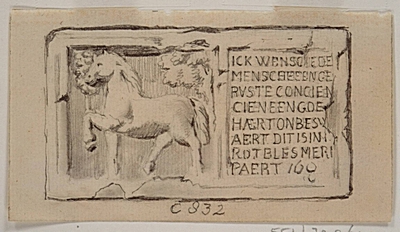 ICK WENSCH EDE
MENSCH EEEN GE
RVSTE CONCIEN
CIEN EEN GOE
HÆRT ONBESW
AERT DIT IS INT
ROT BLES MERI
PAERT 169
C 832